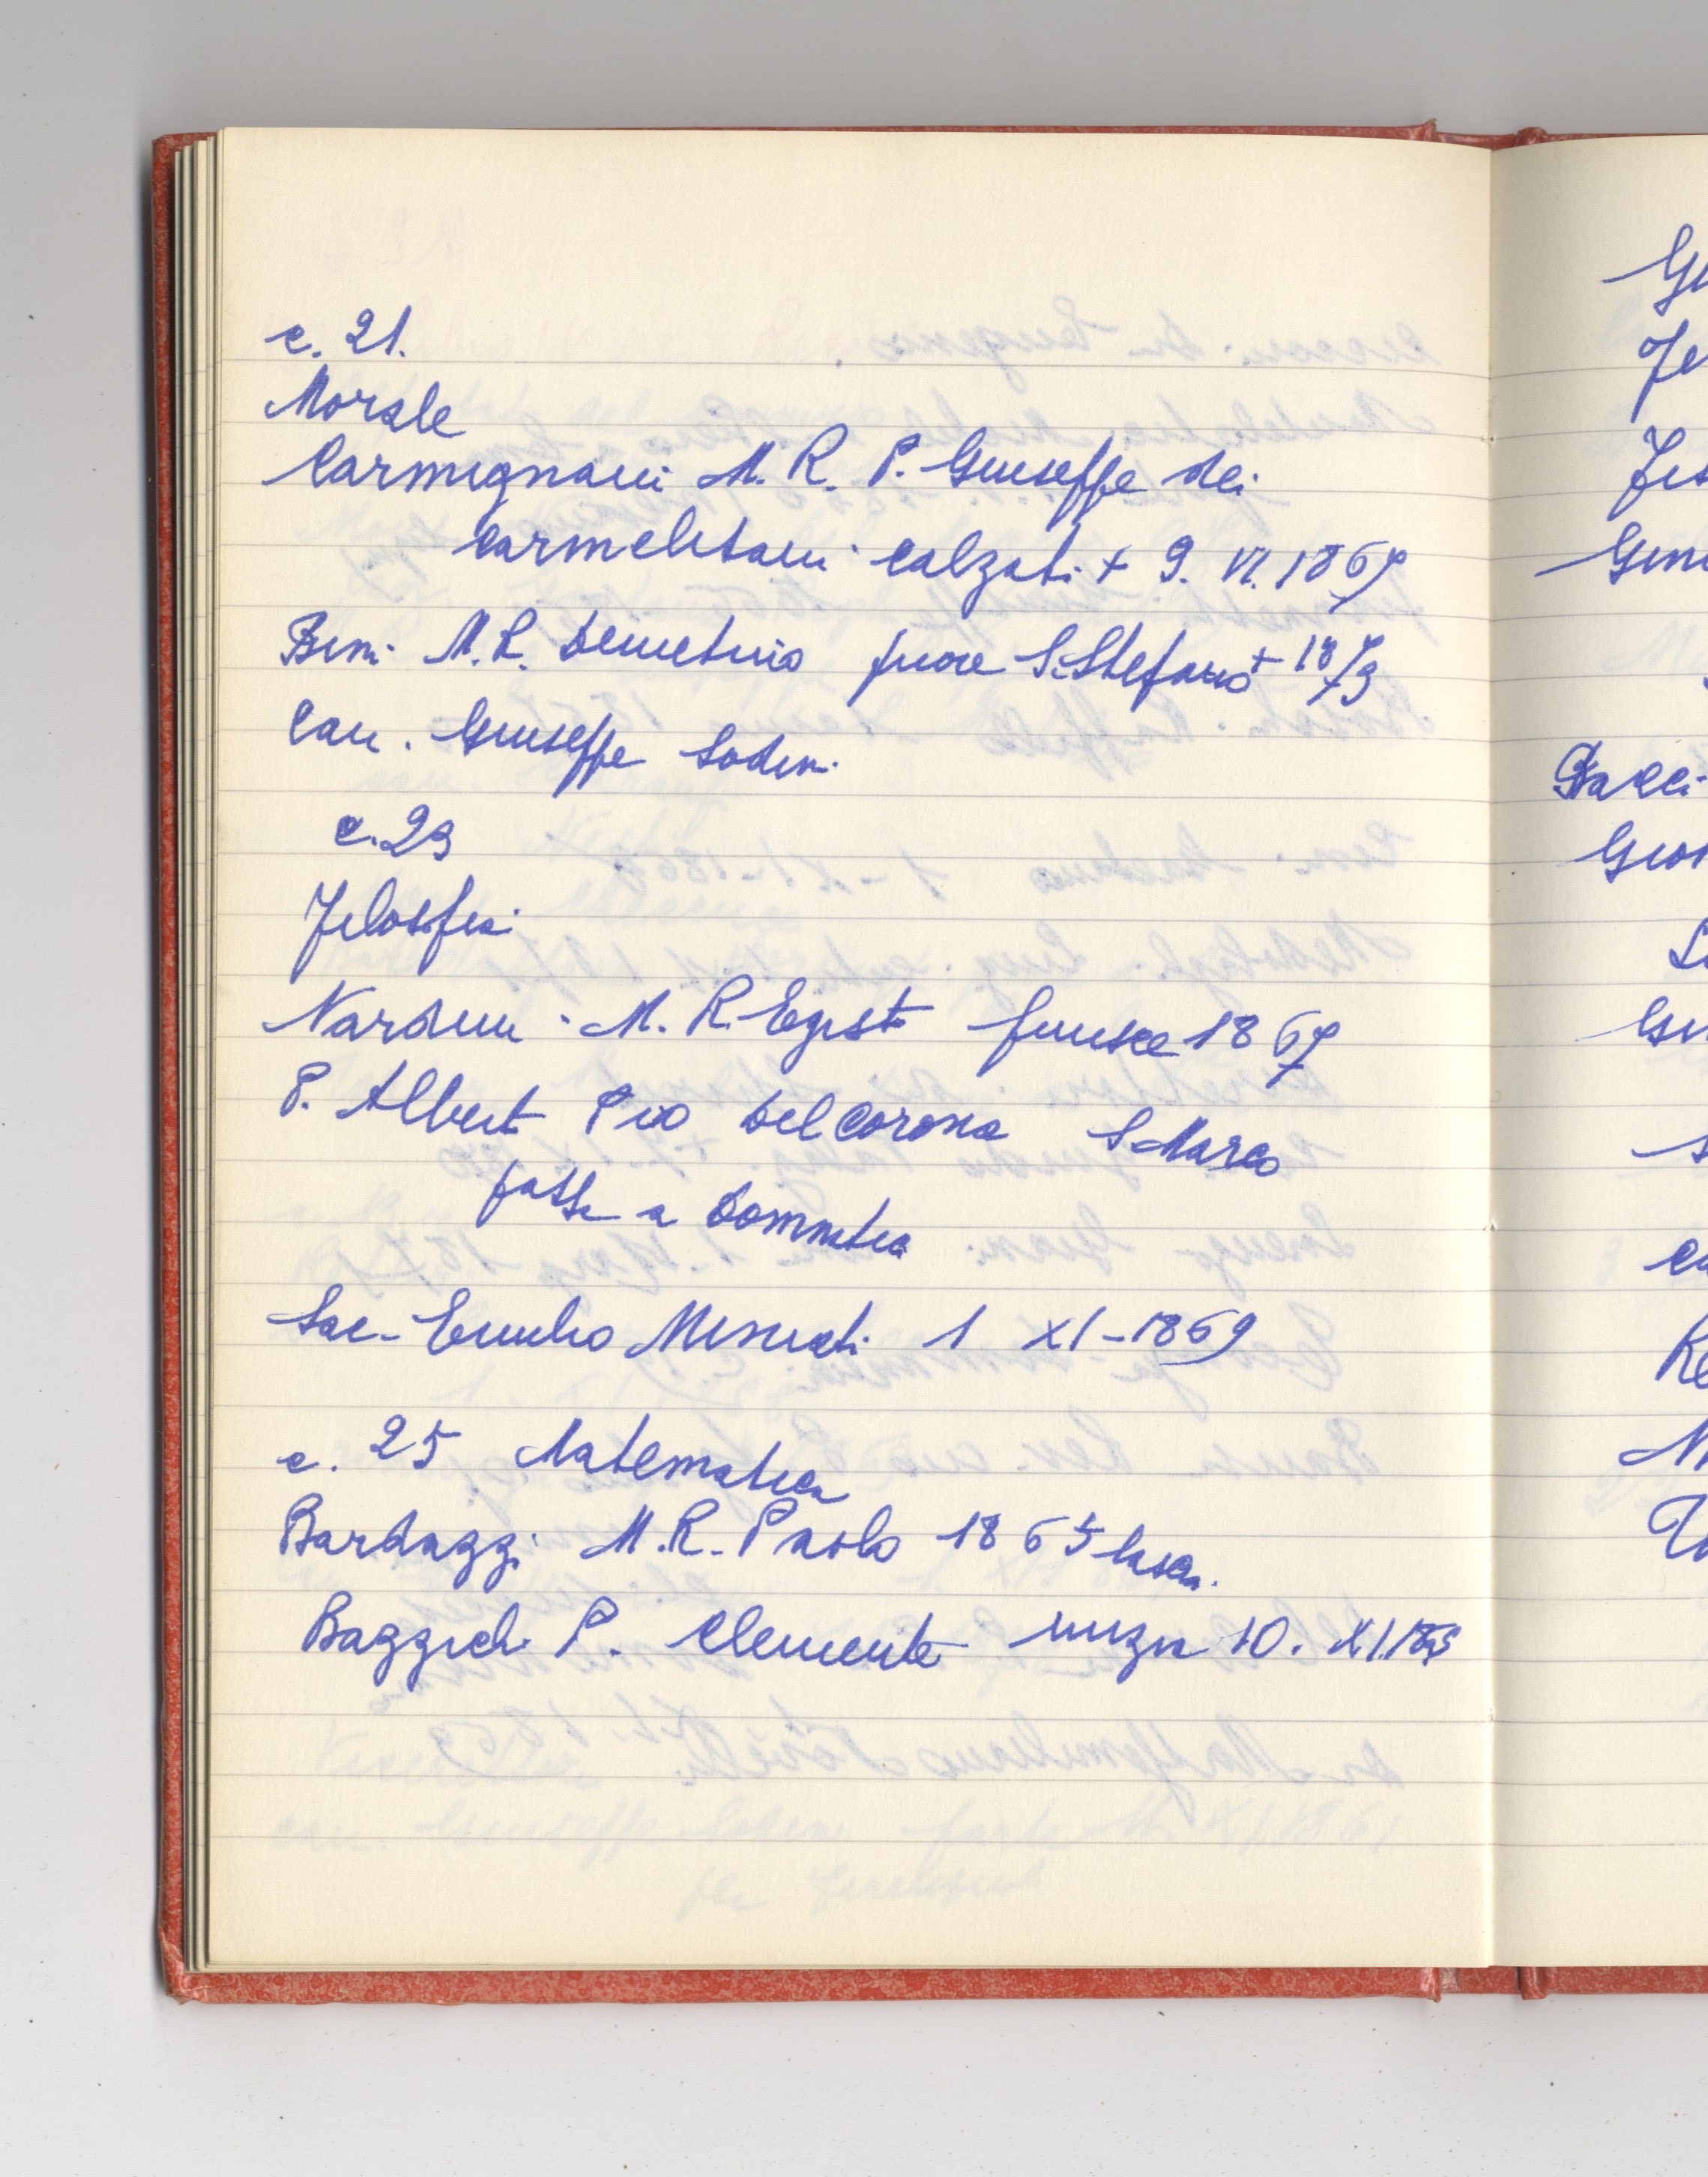 c. 21.
Morale
Carmignani M. R. P. Giuseppe dei
Carmelitani Calzati + 9. VI. 1867
Bini M.R. Demetrio priore S. Stefano + 1873
Can. Giuseppe Sodini
c. 23
Filosofia
Nardini M. R. Egisto finisce 1867
P. Alberto Pio Del Corona S Marco
passa a Dommatica
Sac. Emilio 1 XI-1869
c. 25 Matematica
Bardazzi M.R. Paolo 1865 lascia.
P. Clemente inizia 10. XI.
Gi
Fe
Gin
Bacci
Gio